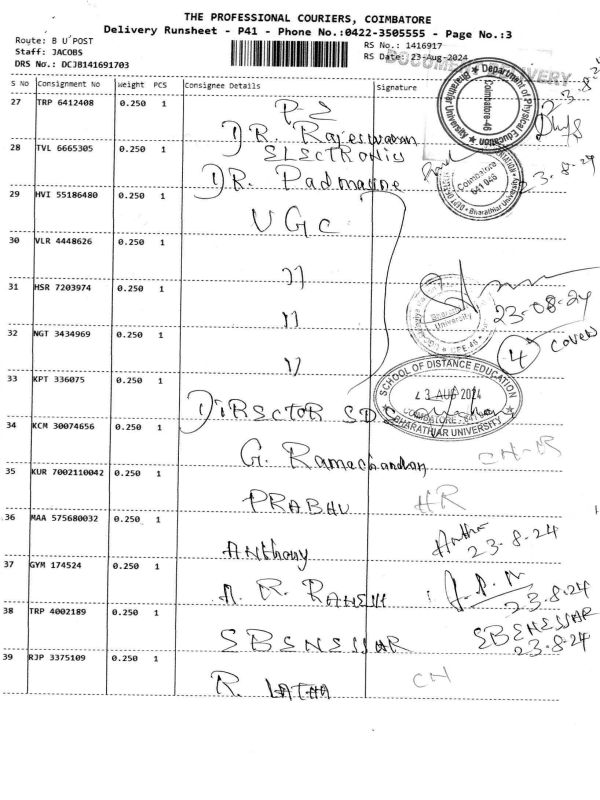 THE PROFESSIONAL COURIERS, COIMBATORE
Delivery Runsheet - P41 - Phone No.:0422-3505555 - Page No.:3
Route: B U'POST
RS No.: 1416917
Staff: JACOBS
RS Date: 23-Aug-2024
DRS No.: DCJB141691703
S No Consignment No Weight PCS Consignee Details Signature
27 TRP 6412408 0.250 1
DR. Rajeswaran
28 TVL 6665305 0.250 1 ELECTRONICS
DR. Padmapine
23.8.24
29 HVI 55186480 0.250 1
UGC
30 VLR 4448626 0.250 1
11
31 HSR 7203974 0.250 1
11
23-08-24
32 NGT 3434969 0.250 1
11
4 covers
33 KPT 336075 0.250 1
SCHOOL OF DISTANCE EDUCATION
23 AUG 2024
BHARATHIAR UNIVERSITY
DIRECTOR SDE
34 KCM 30074656 0.250 1
G. Ramachandran
35 KUR 7002110042 0.250 1
PRABHU HR
36 MAA 575680032 0.250 1
Anthony 23.8.24
37 GYM 174524 0.250 1
A. R. RAHESH
23.8.24
38 TRP 4002189 0.250 1
EBENESSAR EBENESSAR
23.8.24
39 RJP 3375109 0.250 1
R. LATHA CH
Department of Physical Education
Bharathiar University
Coimbatore-46
Coimbatore
641 046
Bharathiar University